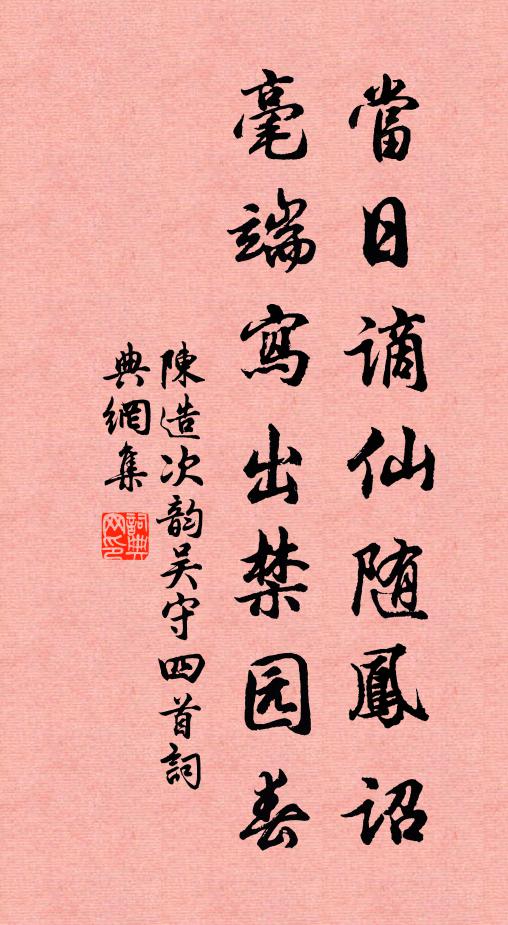 當日謫仙随鳳詔
毫端寫出禁园春
陳造次韵吴守四首詞
典網集
詞典网印